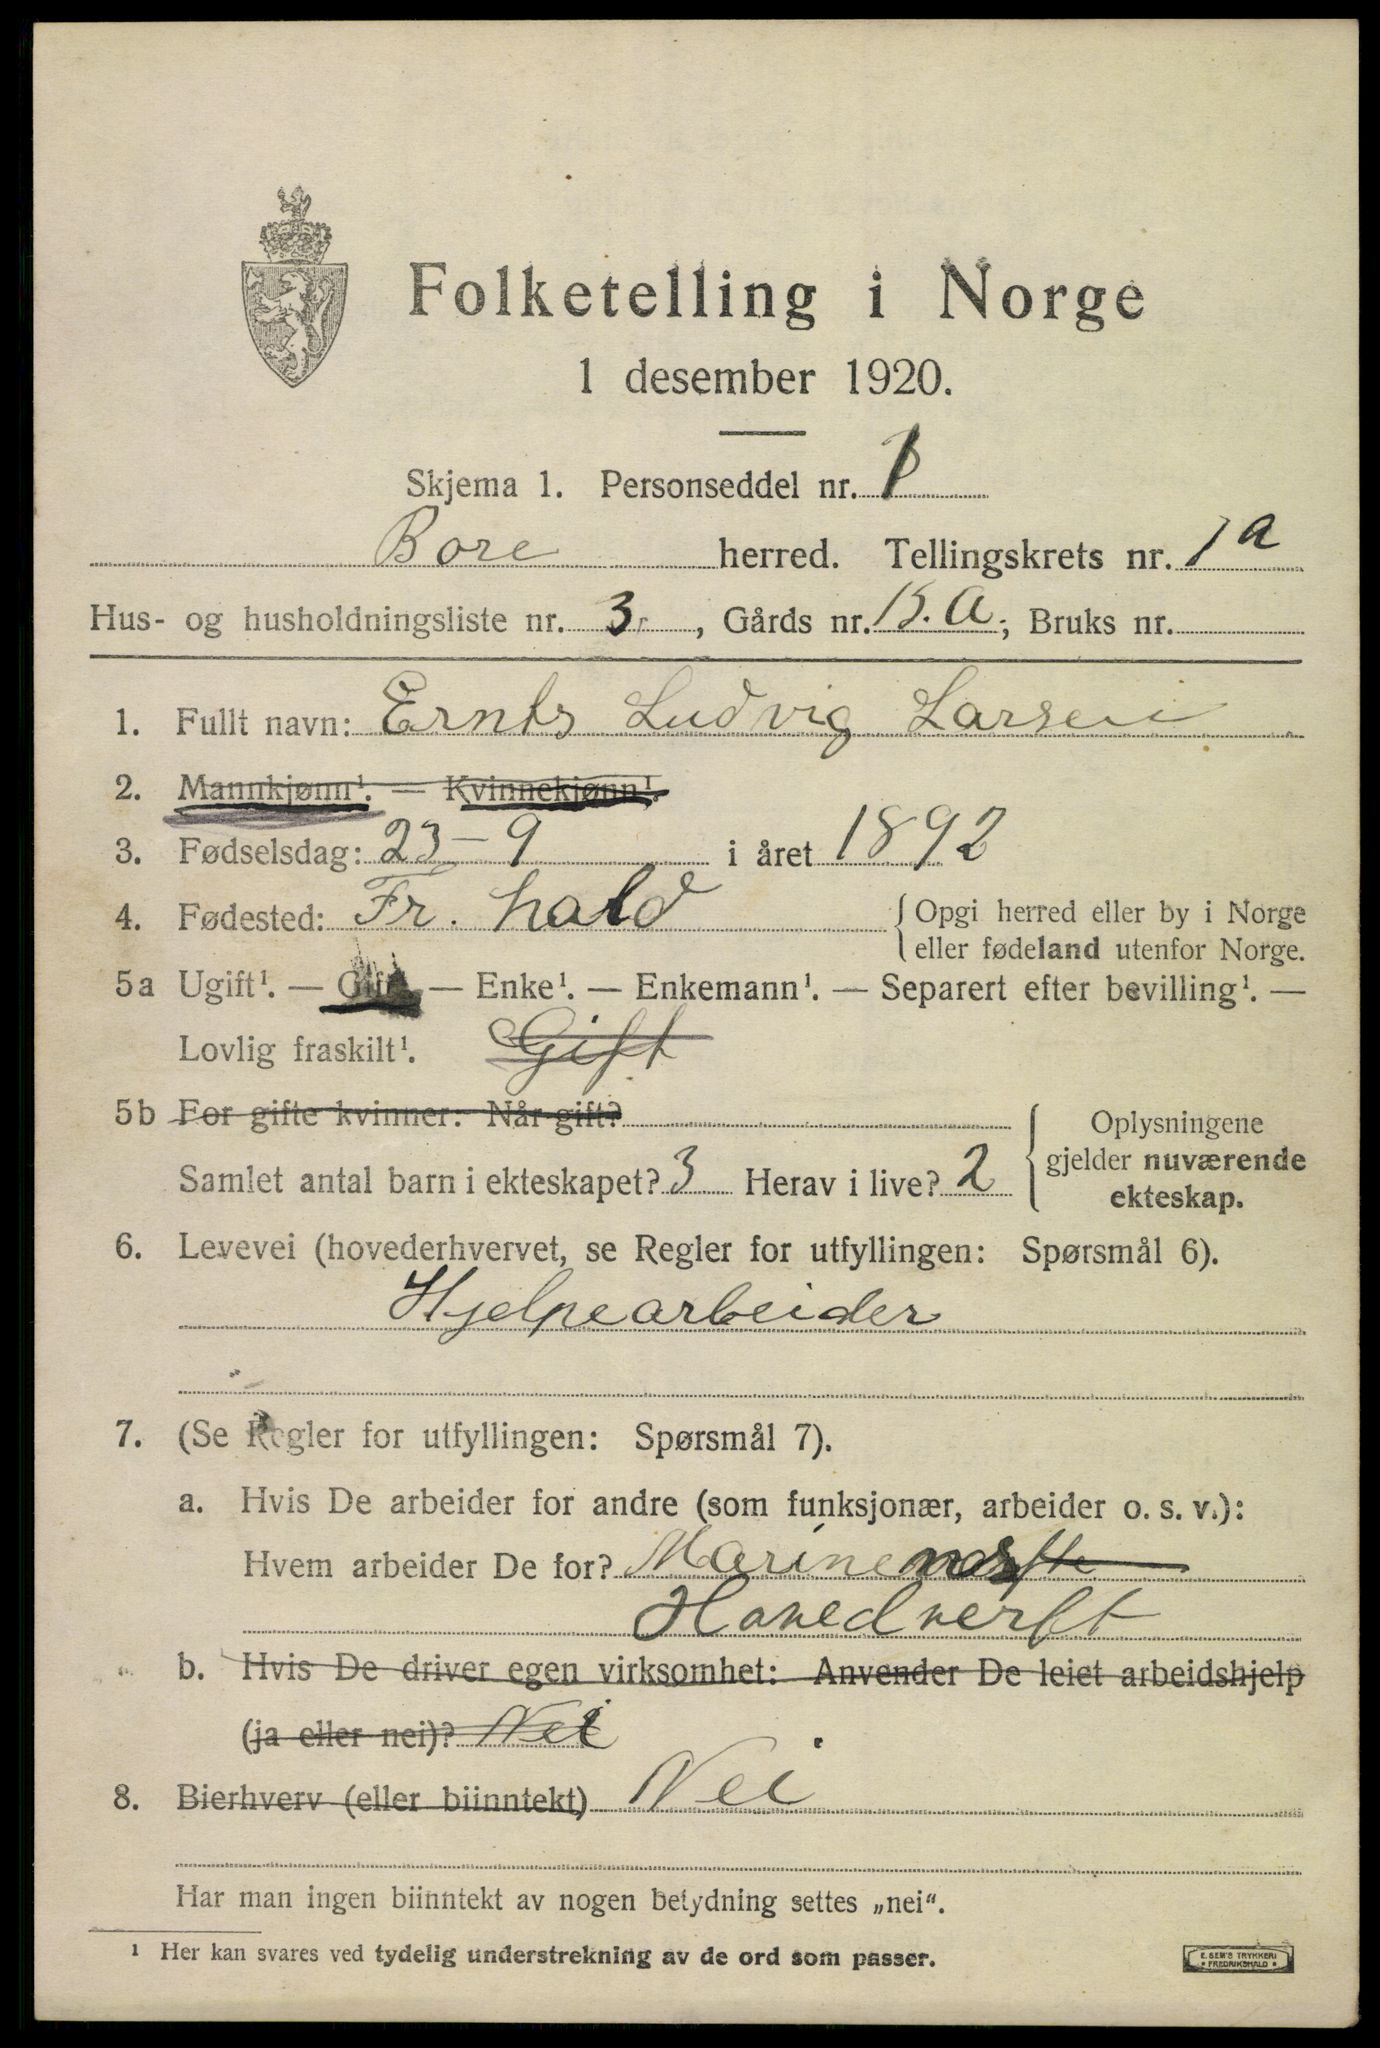 Folketelling i Norge
1 desember 1920.
Skjema 1. Personseddel nr. 1
Bore herred. Tellingskrets nr. 1a
Hus- og husholdningsliste nr. 3, Gårds nr. 15.a; Bruks nr.
1. Fullt navn: Ernts Ludvig Larsen
2. Mannkjønn¹. — Kvinnekjønn¹.
3. Fødselsdag: 23-9 i året 1892
4. Fødested: Fr. hald {Opgi herred eller by i Norge
eller fødeland utenfor Norge.
5a Ugift¹. — Gift¹. — Enke¹. — Enkemann¹. — Separert efter bevilling¹. —
Lovlig fraskilt¹. Gift
5b For gifte kvinner: Når gift? Oplysningene
Samlet antal barn i ekteskapet? 3 Herav i live? 2 gjelder nuværende
ekteskap.
6. Levevei (hovederhvervet, se Regler for utfyllingen: Spørsmål 6).
Hjelpearbeider
7. (Se Regler for utfyllingen: Spørsmål 7).
a. Hvis De arbeider for andre (som funksjonær, arbeider o. s. v.):
Hvem arbeider De for? Marinens
Hovedverft
b. Hvis De driver egen virksomhet: Anvender De leiet arbeidshjelp
(ja eller nei)? Nei
8. Bierhverv (eller biinntekt) Nei
Har man ingen biinntekt av nogen betydning settes „nei“.
¹ Her kan svares ved tydelig understrekning av de ord som passer.
E. SEM'S TRYKKERI
* FREDRIKSHALD *